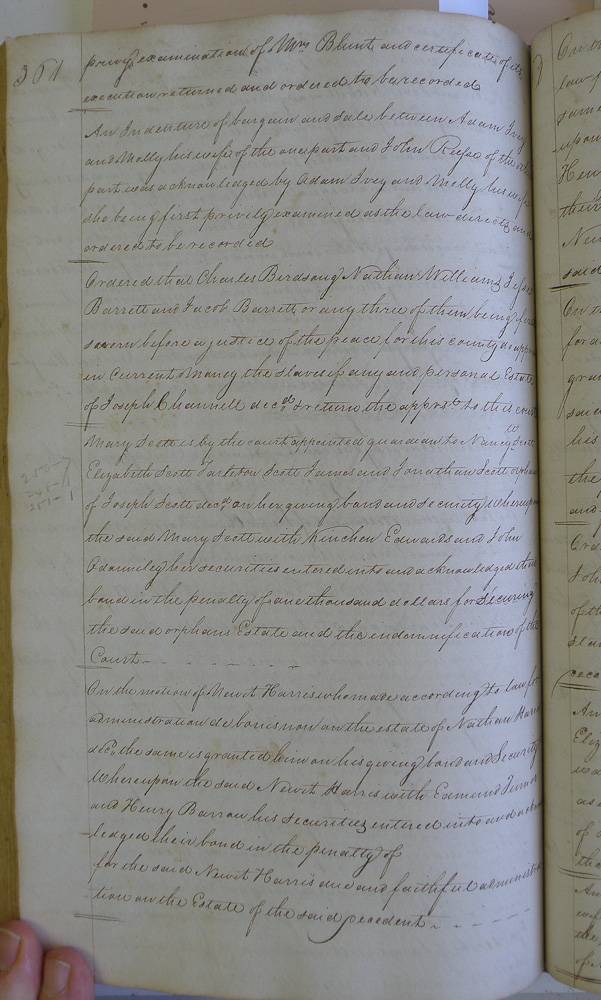 361
privy examination of Mrs Blunt and certificate of its
execution returned and ordered to be recorded
An Indenture of bargain and sale between Adam Ivey
and Molly his wife of the one part and John Reese of the
part was acknowledged by Adam Ivey and Molly his wife
she being first privily examined as the law directs and
ordered to be recorded
Ordered that Charles Birdsong Nathan Williams Jesse
Barrett and Jacob Barrett or any three of them being first
sworn before a justice of the peace for this county do
in Current Money the slaves if any and personal Estate
of Joseph Channell decd. & return the apprst. to this court
Mary Scott is by the court appointed guardian to Nancy Scott
Elizabeth Scott Tarleton Scott James and Jonathan Scott orphans
of Joseph Scott decd. on her giving bond and security Whereupon
the said Mary Scott with Kinchen Edwards and John
her securities entered into and acknowledged their
bond in the penalty of one thousand dollars for securing
the said orphans Estate and the indemnification of the
Court
On the motion of Newit Harris who made according to law for
administration de bonis non on the estate of Nathan Harris
decd. the same is granted him on his giving bond and Security
Whereupon the said Newit Harris with Edmund Turner
and Henry Barrow his securities entered into and
ledged their bond in the penalty of
for the said Newit Harris due and faithful administra
tion on the Estate of the said decedent